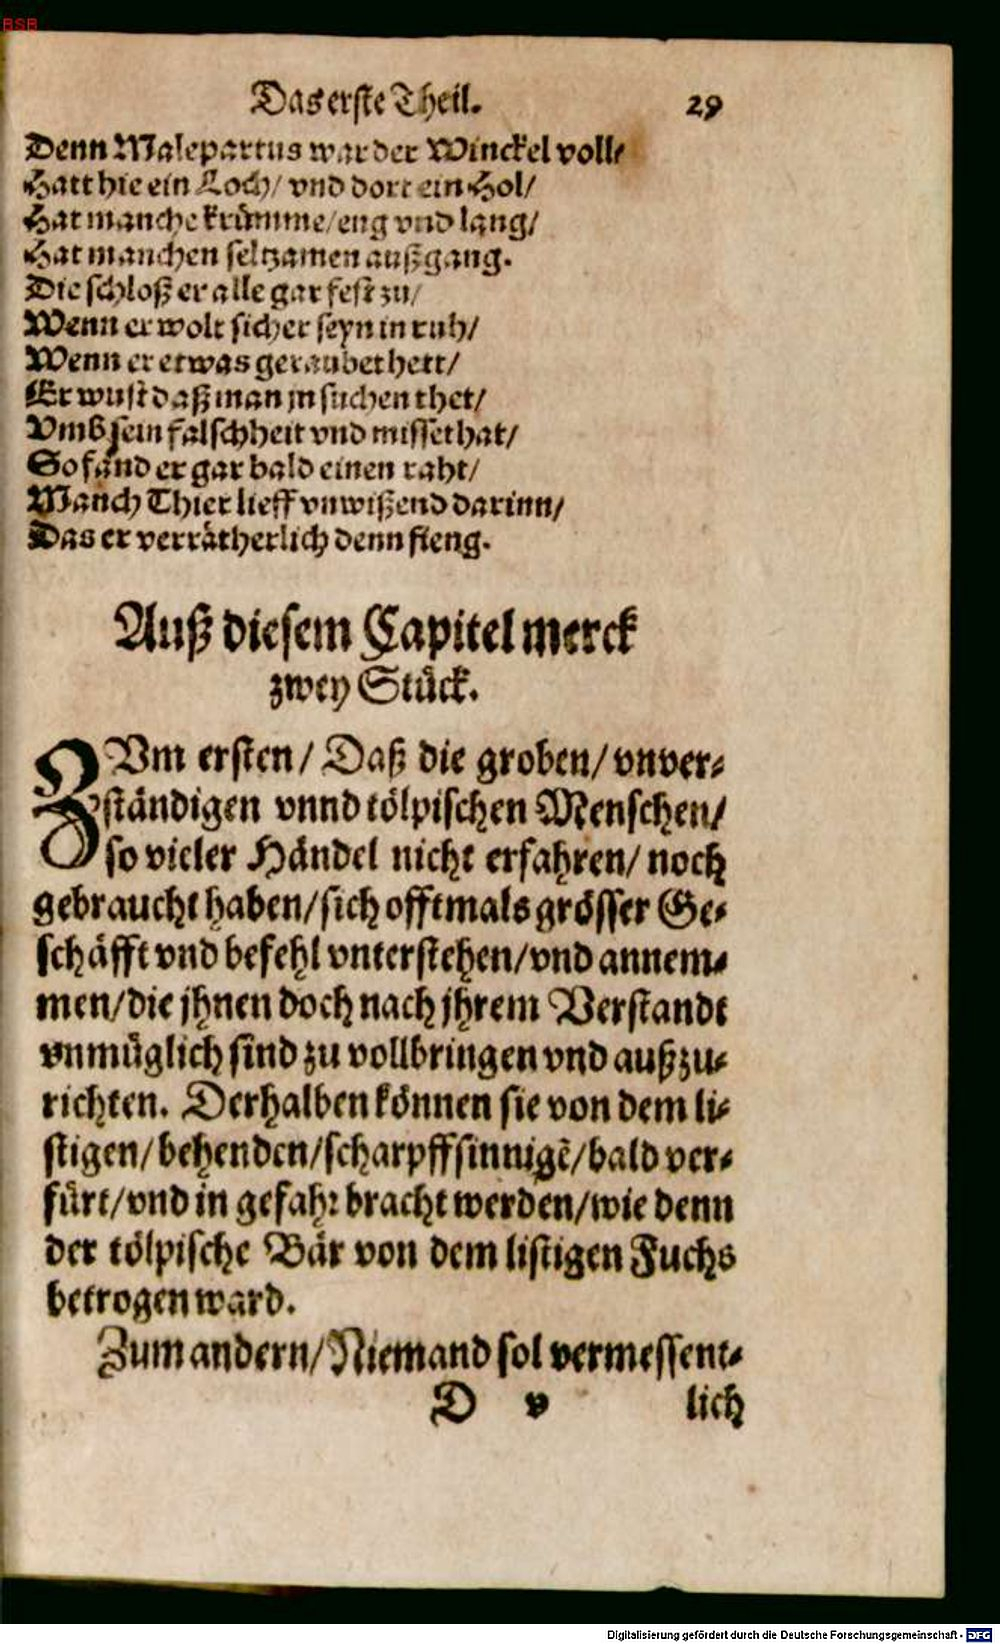 BSB
Das erste Theil. 29
Denn Malepartus war der Winckel voll/
Hatt hie ein Loch/ vnd dort ein Hol/
Hat manche krümme/ eng vnd lang/
Hat manchen seltzamen außgang.
Die schloß er alle gar fest zu/
Wenn er wolt sicher seyn in ruh/
Wenn er etwas geraubet hett/
Er wust daß man jn suchen thet/
Vmb sein falschheit vnd missethat/
So fand er gar bald einen raht/
Manch Thier lieff vnwißend darinn/
Das er verrätherlich denn fieng.
Auß diesem Capitel merck
zwey Stück.
ZVm ersten/ Daß die groben/ vnver-
ständigen vnnd tölpischen Menschen/
so vieler Händel nicht erfahren/ noch
gebraucht haben/ sich offtmals grösser Ge-
schäfft vnd befehl vnterstehen/ vnd annem-
men/ die jhnen doch nach jhrem Verstandt
vnmüglich sind zu vollbringen vnd außzu-
richten. Derhalben können sie von dem li-
stigen/ behenden/ scharpffsinnigē/ bald ver-
fürt/ vnd in gefahr bracht werden/ wie denn
der tölpische Bär von dem listigen Fuchs
betrogen ward.
Zum andern/ Niemand sol vermessent-
D v lich
Digitalisierung gefördert durch die Deutsche Forschungsgemeinschaft - DFG